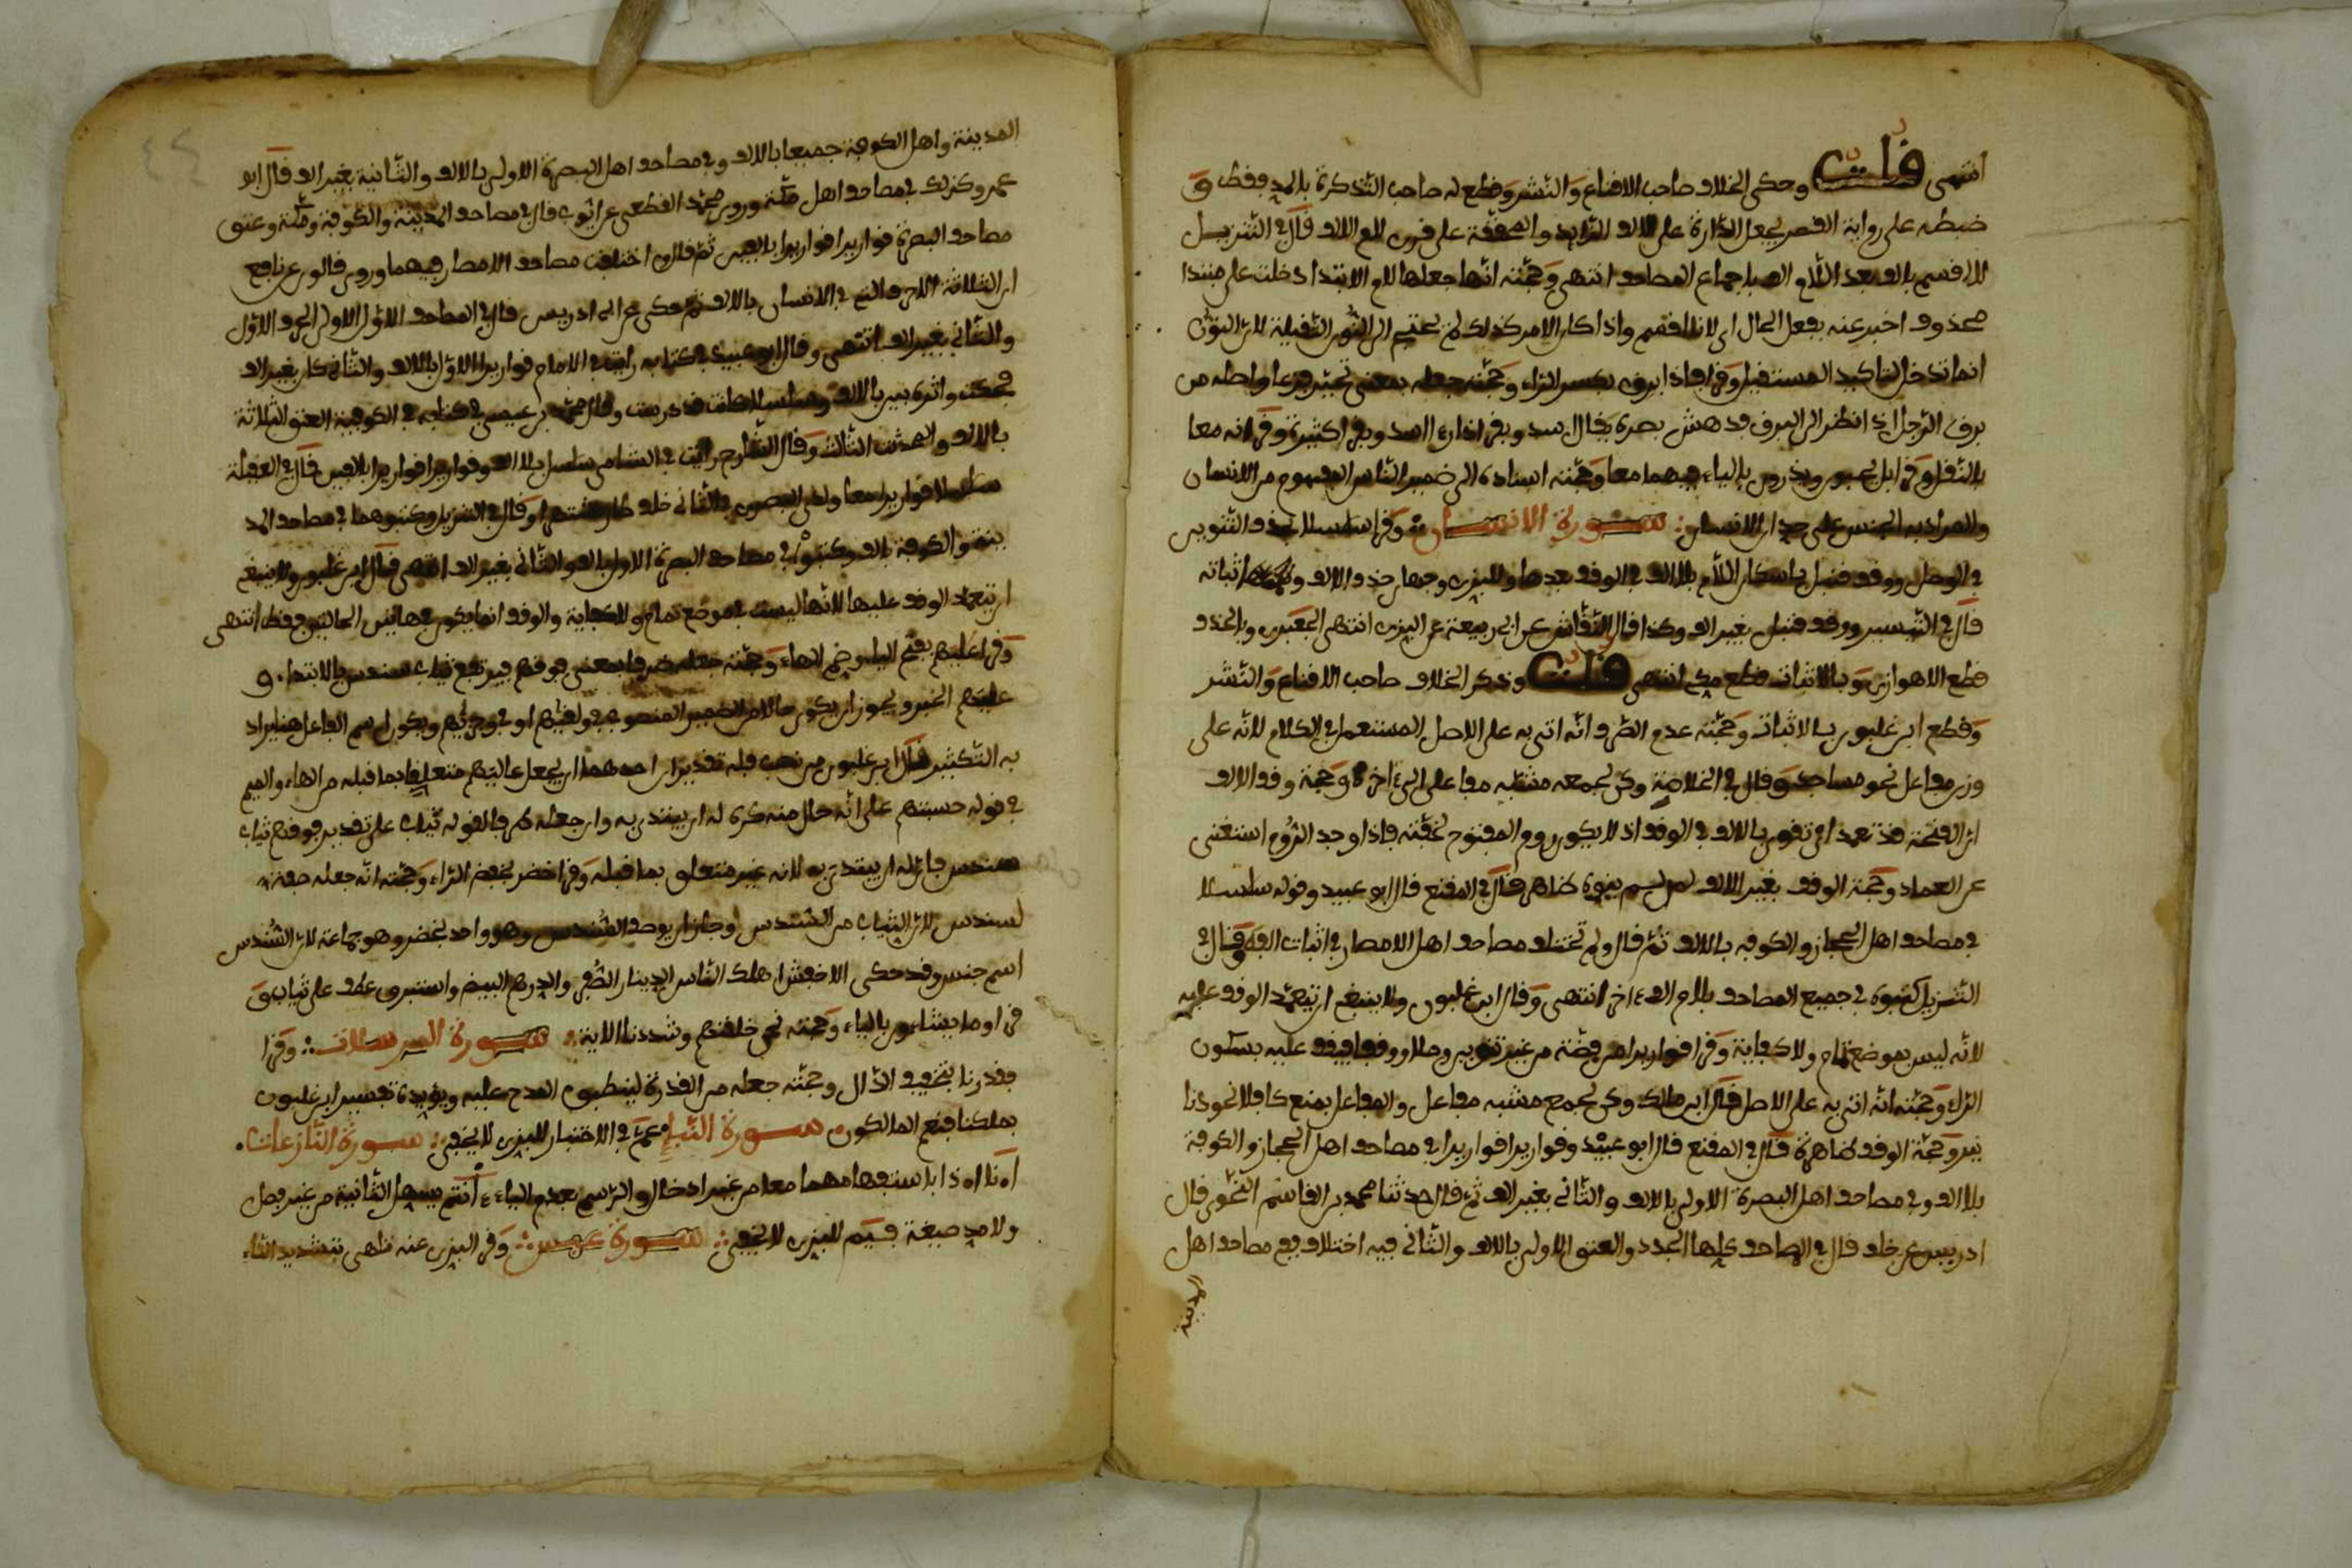 انتهى قلت وحكى الخلاف صاحب الاقناع والنشر وقطع له صاحب التذكرة بالمد فقط و
ضبطه على رواية القصر بجعل الدارة على الالف الزايد والمحققة على قرن للم الالف قال في التنزيل
لا اقسم بالف بعد اللام الف باجماع المصاحف انتهى وحجته انها جعلها لام الابتدا دخلت على مبتدا
محذوف اخبر عنه بفعل الحال اى لانا اقسم واذا كان الامر كذلك لم يحتج الى النون الثقيلة لان النون
انما تدخل لتاكيد المستقبل وقرا فاذا برق بكسر الراء وحجته جعله بمعنى تحير فزعا واصله من
برق الرجل اذا نظر الى البرق فدهش بصره يقال اسد وبقر اذا راى اسدا وبقرا كثيرة وقرانه معا
بالنقل وقرا بل يحبون ويذرون بالياء فيهما معا وحجته اسناده الى ضمير الناس المفهوم من الانسان
والمراد به الجنس على حد ان الانسان سورة الانسان وقرا سلسلا بحذف التنوين
في الوصل ووقف قنبل باسكان اللام بلا الف في الوقف بعدها وللبزى وجهان حذف الالف واثباته
قال في التيسير ووقف قنبل بغير الف وكذا قال النقاش عن ابى ربيعة عن البزى انتهى الجعبرى وبالحذف
قطع الاهوازى وبالاثبات قطع مكى انتهى قلت وذكر الخلاف صاحب الاقناع والنشر
وقطع ابن غلبون بالاثبات وحجته عدم الصرف انه اتى به على الاصل المستعمل في الكلام لانه على
وزن مفاعل نحو مساجد وقال في الخلاصة وكن لجمع مشبه مفاعلا الى اخره وحجة وقف الالف
ان الفتحة قد تعمد اى تقوى بالالف في الوقف اذ لا يكون روم المفتوح لخفته فاذا وجد الروم استغنى
عن العماد وحجة الوقف بغير الالف لمن لم ينون ظاهر قال في المقنع قال ابو عبيد وقوله سلسلا
في مصاحف اهل الحجاز والكوفه بالالف ثم قال ولم تختلف مصاحف اهل الامصار في اثبات الالف وقال في
التنزيل كتبوه في جميع المصاحف بلام الف اخر انتهى وقال ابن غلبون ولا ينبغي ان يتعمد الوقف عليه
لانه ليس بموضع تمام ولا كفاية وقرا قواريرا من فضة من غير تنوين وصلا ووقفا فيقف عليه بسكون
الراء وحجته انه اتى به على الاصل قال ابن مالك وكن لجمع مشبه مفاعل والمفاعل بمنع كافلا نحو دنا
نير وحجة الوقف ظاهرة قال في المقنع قال ابو عبيد وقواريرا قواريرا في مصاحف اهل الحجاز والكوفة
بلا الف وفي مصاحف اهل البصرة الاولى بالالف والثانى بغير الف ثم قال حدثنا محمد بن القاسم النحوى قال
ادريس عن خلف قال في المصاحف كلها الجدد والعتق الاولى بالالف والثانى فيه اختلاف ففى مصاحف اهل
المدينة
المدينة واهل الكوفة جميعا بالالف وفي مصاحف اهل البصرة الاولى بالالف والثانية بغير الف قال ابو
عمرو وكذلك في مصاحف اهل مكة وروى محمد القطعى عن ايوب قال في مصاحف المدينة والكوفة ومكة وعتق
مصاحف البصرة قواريرا قواريرا بالفين ثم قال اختلفت مصاحف الامصار فيهما وروى قالون عن نافع
ان الثلاثة الاحرف التى في الانسان بالالف ثم حكى عن ابى ادريس قال في المصاحف الاول الاولى الحرف الاول
والثانى بغير الف انتهى وقال ابو عبيد في كتابه رايت في الامام قواريرا الاول بالالف والثانى كان بغير الف
فحكت واثره بين بالالف وسلسلا فد درست وقال محمد بن عيسى في كتابه في الكوفية العتق الثلاثة
بالالف والمحدث الثالث وقال الشارح رايت في الشامى سلسل بلا الف وقواريرا قواريرا بلا الفين قال في العقيلة
سلسلا قواريرا معا ولدى البصرى في الثانى خلف سار مشتهرا وقال في التنزيل وكتبوهما في مصاحف المد
ينة والكوفة بالف وكتبوا في مصاحف البصرة الاول بالف والثانى بغير الف انتهى قال ابن غلبون ولا ينبغي
ان يتعمد الوقف عليها لانها ليست بموضع تمام ولا كفاية والوقف انما يكون في هاتين الحالين فقط انتهى
وقرا عليهم بفتح الياء وضم الهاء وحجته جعله ظرفا بمعنى فوقهم فيرتفع ثياب سندس بالابتداء و
عليهم الخبر ويجوز ان يكون حالا من الضمير المنصوب في ولقيهم او في وجزيهم ويكون اسم الفاعل هنا يراد
به التكثير قال ابن غلبون من نصب فله تقديران احدهما ان يجعل عاليهم متعلقا بما قبله من الهاء والميم
في قوله حسبتهم على انه حال منه كره له ان يبتدئ به وان جعله ظرفا لقوله ثياب على تقدير فوقهم ثياب
سندس جاز له ان يبتدى به لانه غير متعلق بما قبله وقرا خضر بخفض الراء وحجته انه جعله صفة
لسندس لان الثياب من السندس وجاز ان يوصف السندس وهو واحد بخضر وهو جماعة لان السندس
اسم جنس وقد حكى الاخفش اهلك الناس الدينار الصفر والدرهم البيض واستبرق عطف على ثياب و
قرا وما يشاءون بالياء وحجته نحن خلقنهم وشددنا الاية سورة المرسلات وقرا
فقدرنا بتخفيف الدال وحجته جعله من القدرة لينطبق المدح عليه ويؤيده تفسير ابن غلبون
بملكنا فنعم المالكون سورة النبإ عم في الاختبار للبزى لا يخفى سورة النازعات
اءنا اءذا بالاستفهام فيهما معا من غير ادخال والرسم بعدم الياء ءانتم يسهل الثانية من غير فصل
ولا مد صيغة فيم للبزى لا يخفى سورة عبس وقرا البزى عنه تلهى بتشديد التاء